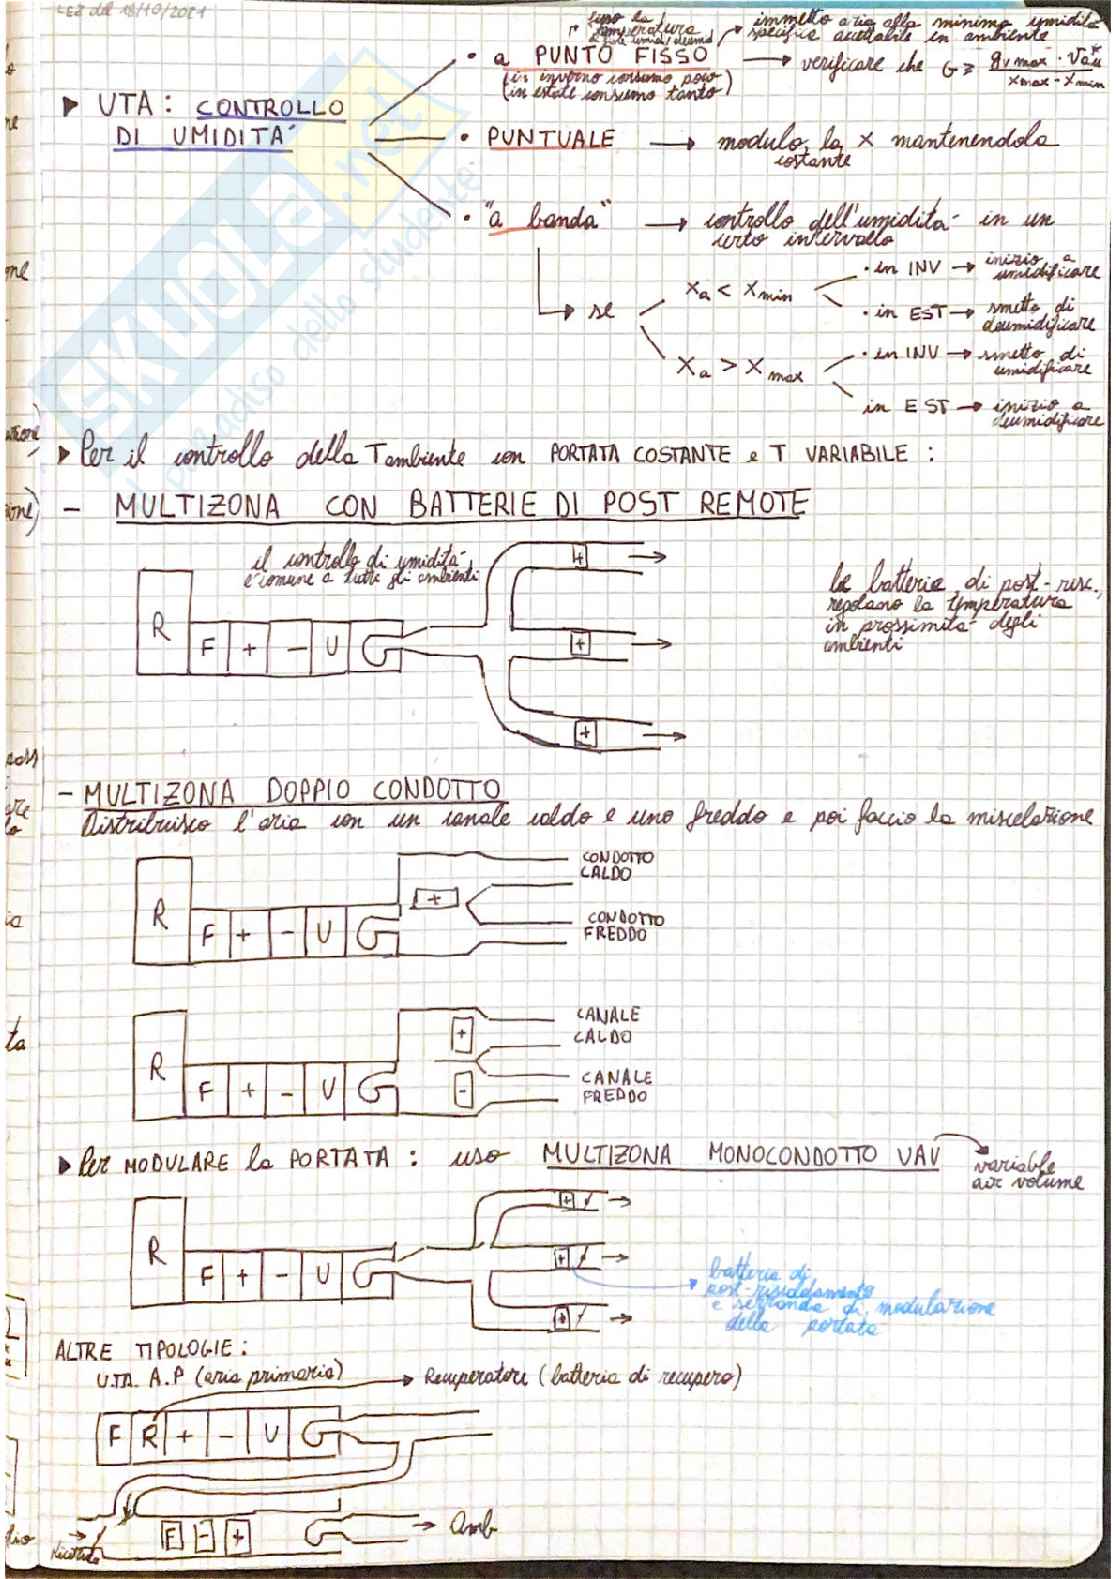 LEZ del 18/10/2021
fisso la temperatura
immetto aria alla minima umidità
specifica accettabile in ambiente
• a PUNTO FISSO → verificare che G ≥ gv max · Vau / xmax - xmin
(in inverno consumo poco)
(in estate consumo tanto)
▶ UTA: CONTROLLO
DI UMIDITA'
• PUNTUALE → modulo la x mantenendola
costante
• "a banda" → controllo dell'umidità in un
certo intervallo
se
Xa < Xmin
• in INV → inizio a
umidificare
• in EST → smetto di
deumidificare
Xa > Xmax
• in INV → smetto di
umidificare
in EST → inizio a
deumidificare
▶ Per il controllo della Tambiente con PORTATA COSTANTE e T VARIABILE :
- MULTIZONA CON BATTERIE DI POST REMOTE
il controllo di umidità
è comune a tutti gli ambienti
R F + - U
+
+
+
le batterie di post-risc.
regolano la temperatura
in prossimità degli
ambienti
- MULTIZONA DOPPIO CONDOTTO
Distribuisco l'aria con un canale caldo e uno freddo e poi faccio la miscelazione
R F + - U
+
CONDOTTO
CALDO
CONDOTTO
FREDDO
R F + - U
+
-
CANALE
CALDO
CANALE
FREDDO
▶ Per MODULARE la PORTATA : uso MULTIZONA MONOCONDOTTO VAV
variable
air volume
R F + - U
+
+
+
batteria di
post-riscaldamento
e serranda di modulazione
della portata
ALTRE TIPOLOGIE :
U.TA. A.P (aria primaria) → Recuperatore (batteria di recupero)
F R + - U
F - +
Ricircolo
→ Amb
SKUOLA.net
paradiso dello studente